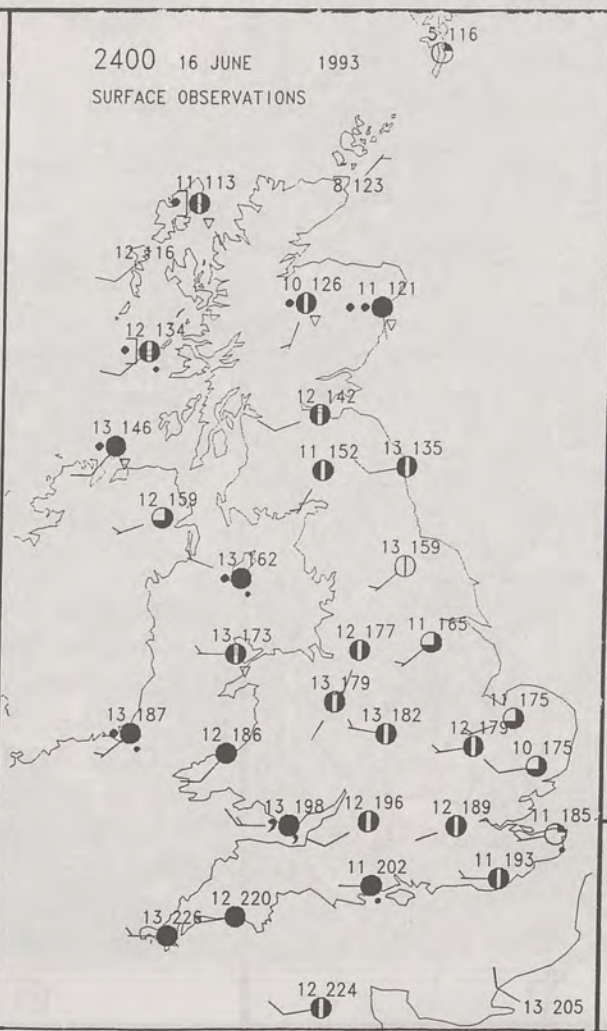 5 116
2400 16 JUNE 1993
SURFACE OBSERVATIONS
11 113
8 123
12 116
10 126
11 121
12 134
12 142
13 146
11 152
13 135
12 159
13 162
13 159
13 173
12 177
11 165
13 179
13 182
11 175
12 179
10 175
13 187
12 186
13 198
12 196
12 189
11 185
11 202
11 193
12 220
13 226
12 224
13 205